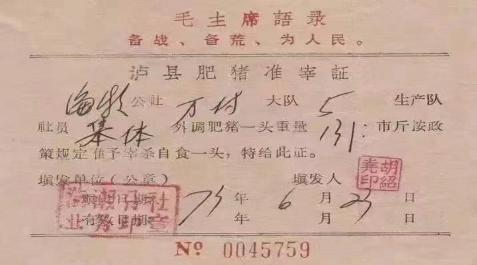 毛主席語录
备战、备荒、为人民。
泸县肥猪准宰証
海潮公社 万村 大队 5 生产队
社员 集体 外调肥猪一头重量 131 市斤按政
策规定准予宰杀自食一头，特给此証。
填发单位(公章) 填发人 胡紹尧印
填发日期 75 年 6 月 23 日
有效日期 年 月 日
No 0045759